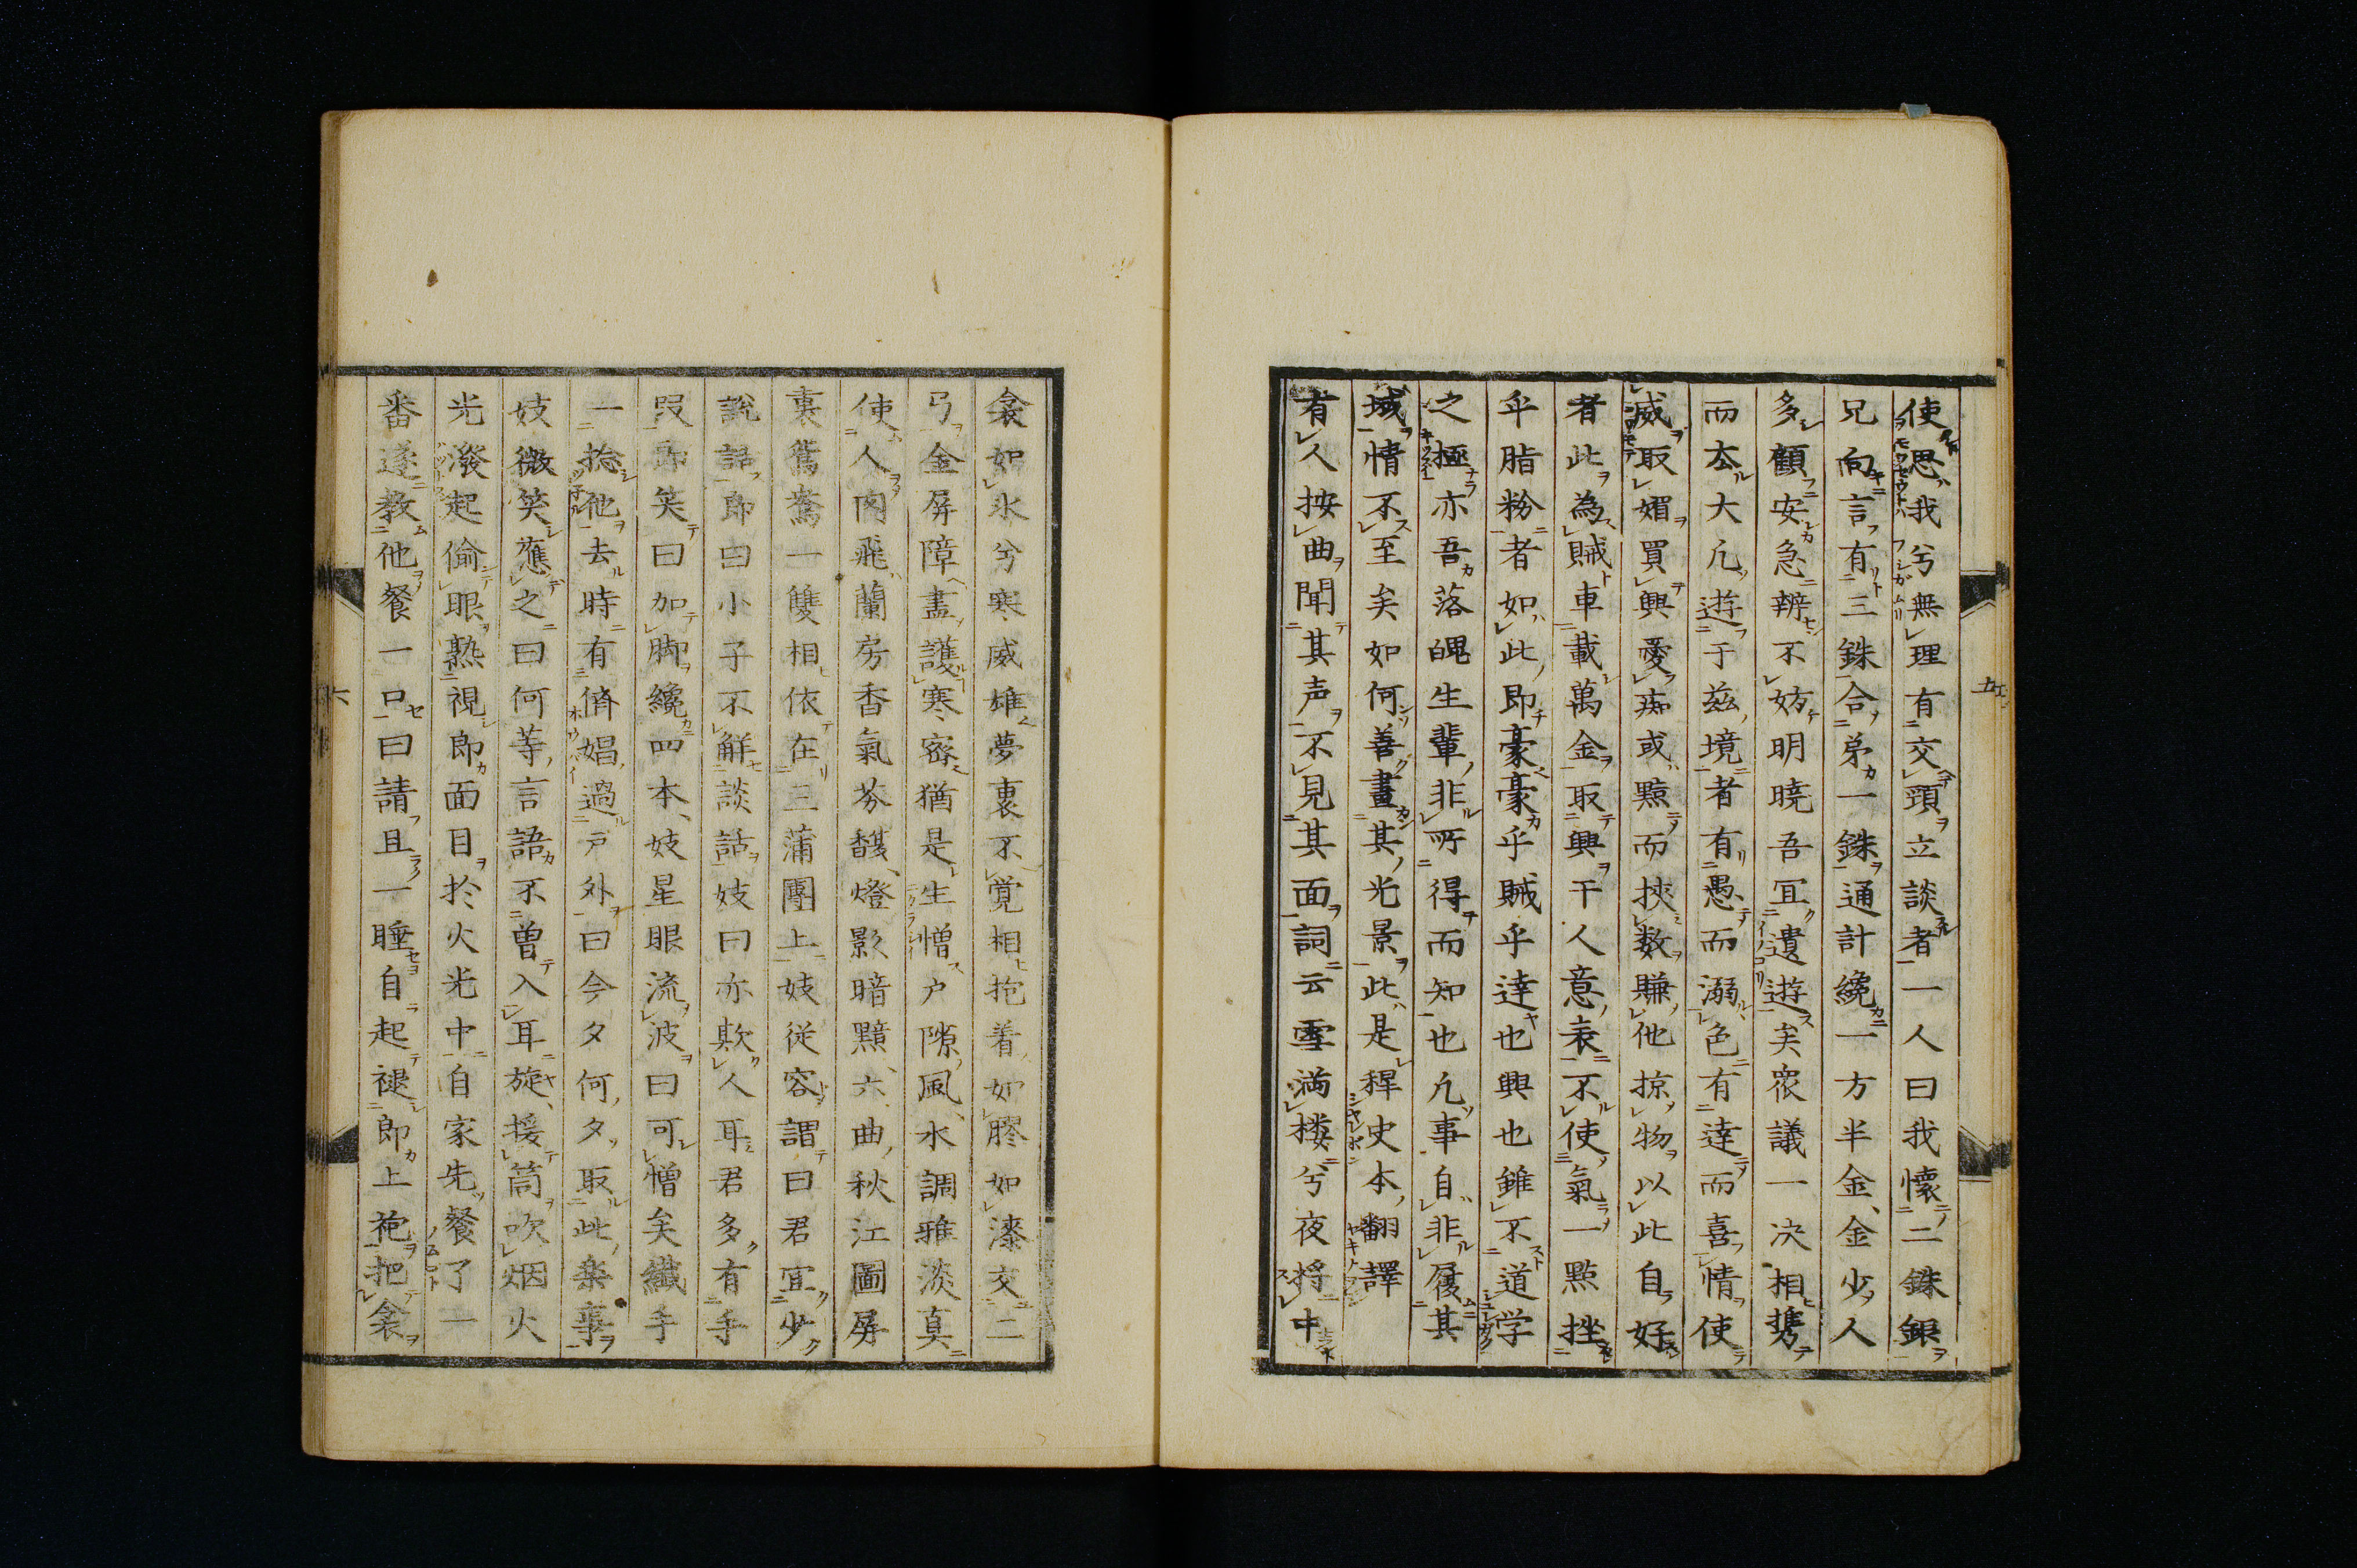 使思我兮無理有交頸立談者一人曰我懷二銖銀
兄向言有三銖合弟一銖通計纔一方半金金少人
多顧安急辨不妨明曉吾冝遺遊矣衆議一决相携
而去大凢遊于兹境者有愚而溺色有達而喜情使
滅取媚買興愛痴或點而挾数賺他掠物以此自好
者此為賊車載萬金取興于人意表不使氣一點挫
乎脂粉者如此即豪豪乎賊乎達也興也雖不道学
之極亦吾落魄生輩非所得而知也凢事自非履其
域情不至矣如何善畫其光景此是稗史本翻譯
有人按曲聞其声不見其面詞云雪満楼兮夜将中
衾如氷兮寒威雄夢裏不覚相抱着如膠如漆交二
弓金屏障盡護寒密猶是生憎戸隙風水調雅淡真
使人肉飛蘭房香氣芬馥燈影暗黯六曲秋江圖屏
裏鴛鴦一雙相依在三蒲團上妓従容謂曰君冝少
說話郎曰小子不解談話妓曰亦欺人耳君多有手
叚郎笑曰加脚纔四本妓星眼流波曰可憎矣纖手
一捻他去時有儕娼過戸外曰今夕何夕取此楽事
妓微笑應之曰何等言語不曽入耳旋援筒吹烟火
光潑起偷眼熟視郎面目於火光中自家先餐了一
番遂教他餐一口曰請且一睡自起褪郎上袍把衾
五
六